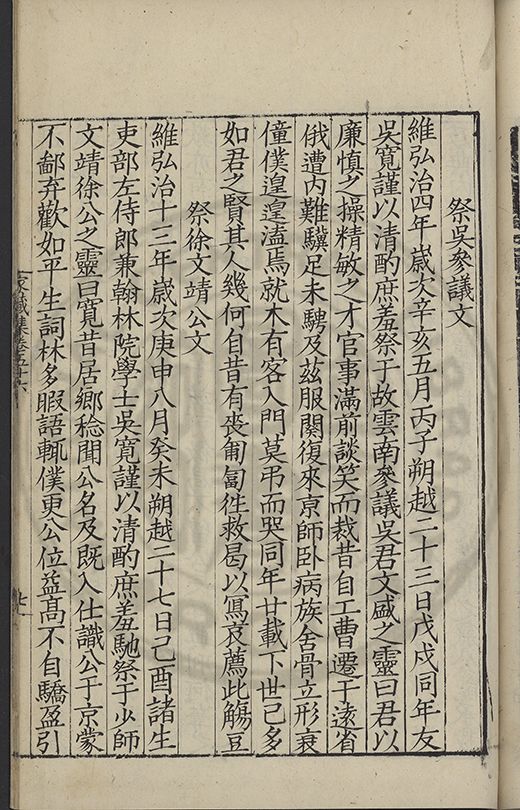 祭吳參議文
維弘治四年歲次辛亥五月丙子朔越二十三日戊戌同年友
吳寬謹以清酌庶羞祭于故雲南參議吳君文盛之靈曰君以
廉慎之操精敏之才官事滿前談笑而裁昔自工曹遷于遠省
俄遭內難驥足未騁及玆服闋復來京師卧病旅舍骨立形衰
僮僕遑遑溘焉就木有客入門莫弔而哭同年廿載下世已多
如君之賢其人幾何自昔有喪匍匐徃救曷以寫哀薦此觴豆
祭徐文靖公文
維弘治十三年歲次庚申八月癸未朔越二十七日己酉諸生
吏部左侍郎兼翰林院學士吳寬謹以清酌庶羞馳祭于少師
文靖徐公之靈曰寬昔居鄉稔聞公名及既入仕識公于京蒙
不鄙弃歡如平生詞林多暇語輒僕更公位益髙不自驕盈引